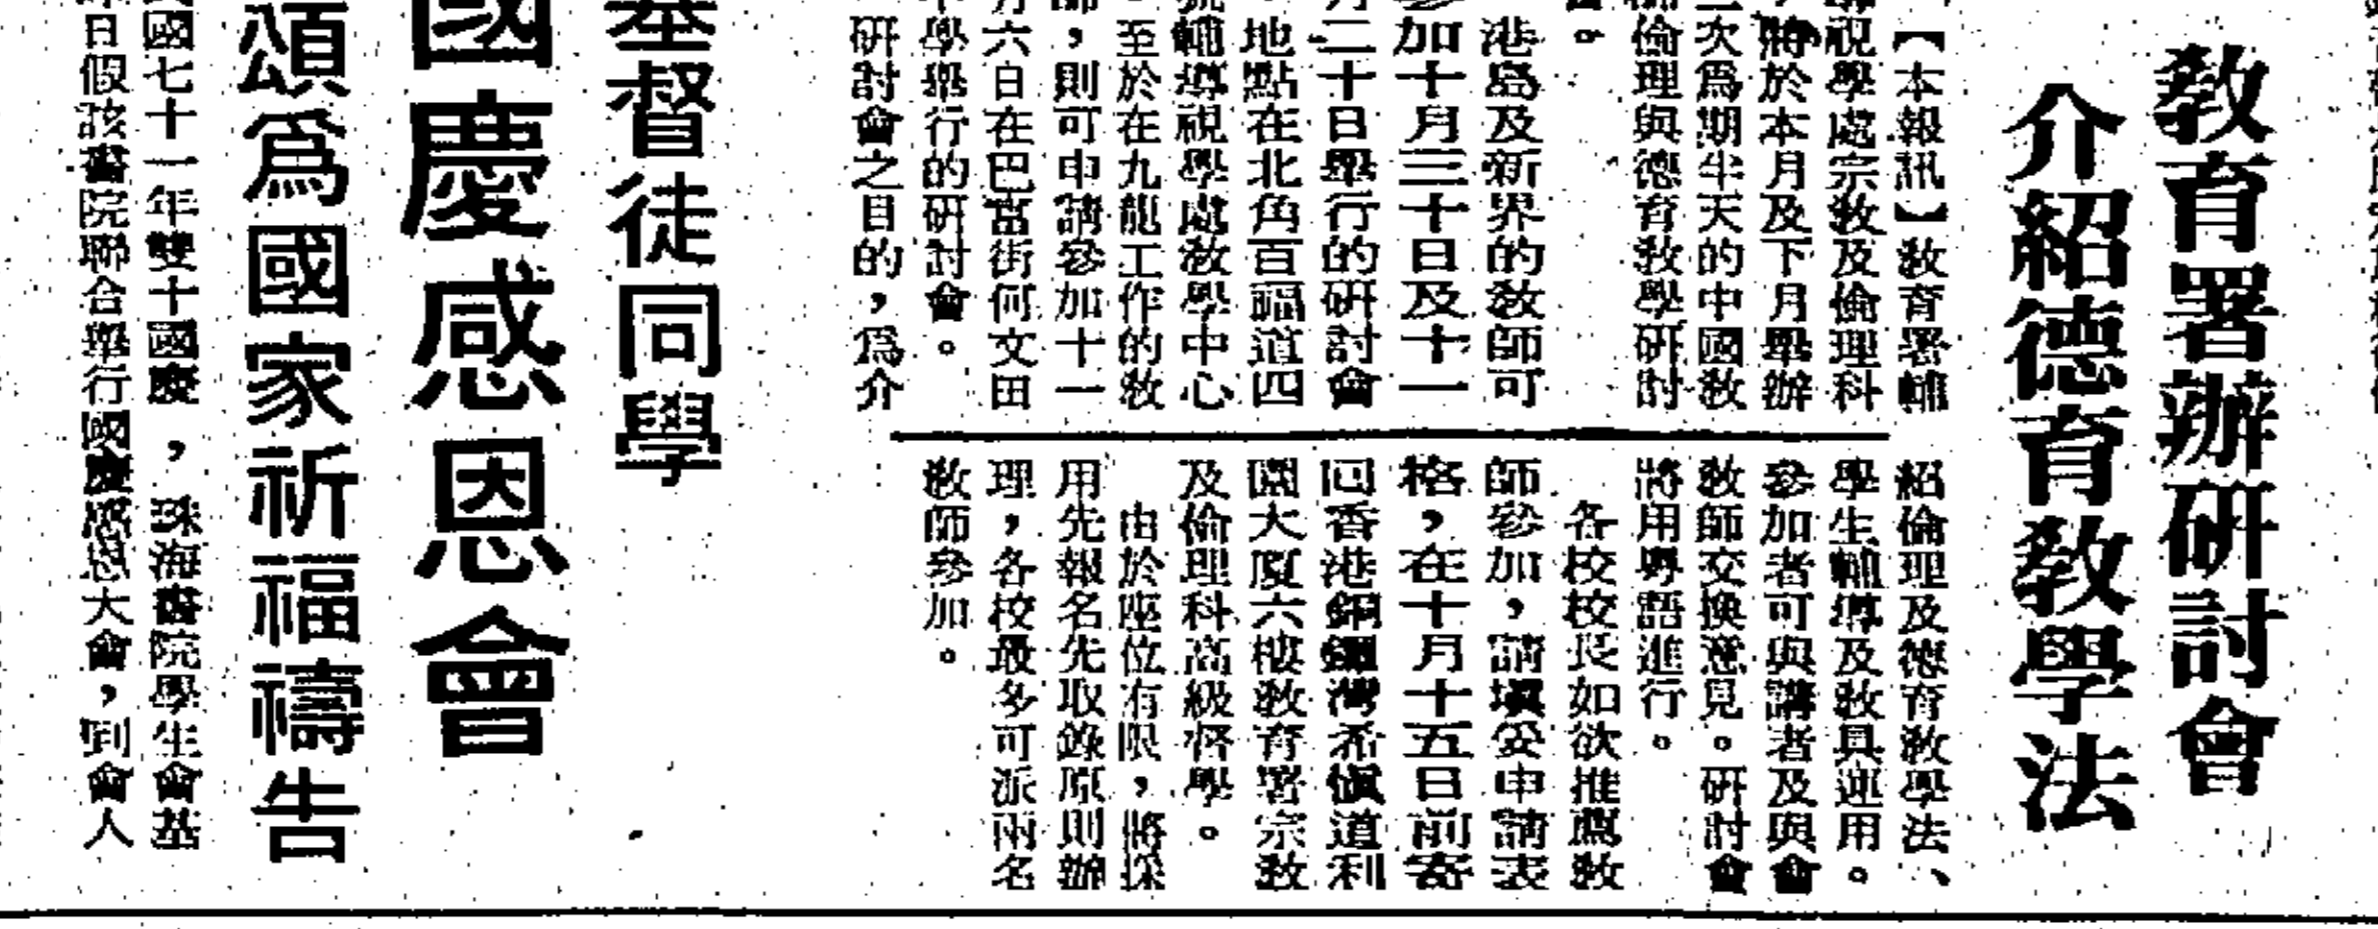 教育署辦研討會
介紹德育教學法
【本報訊】教育署輔
導視學處宗教及倫理科
，將於本月及下月舉辦
二次為期半天的中國教
倫理與德育教學研討
會。
港島及新界的教師可
參加十月三十日及十一
月二十日舉行的研討會
。地點在北角百福道四
號輔導視學處教學中心
。至於在九龍工作的教
師，則可申請參加十一
月六日在巴富街何文田
中學舉行的研討會。
研討會之目的，為介
紹倫理及德育教學法、
學生輔導及教具運用。
參加者可與講者及與會
教師交換意見。研討會
將用粵語進行。
各校校長如欲推薦教
師參加，請填妥申請表
格，在十月十五日前寄
回香港銅鑼灣希慎道利
園大廈六樓教育署宗教
及倫理科高級督學。
由於座位有限，將採
用先報名先取錄原則辦
理，各校最多可派兩名
教師參加。
基督徒同學
國慶感恩會
頌為國家祈福禱告
國七十一年雙十國慶，珠海書院學生會基
日假該書院聯合舉行國慶感恩大會，到會人